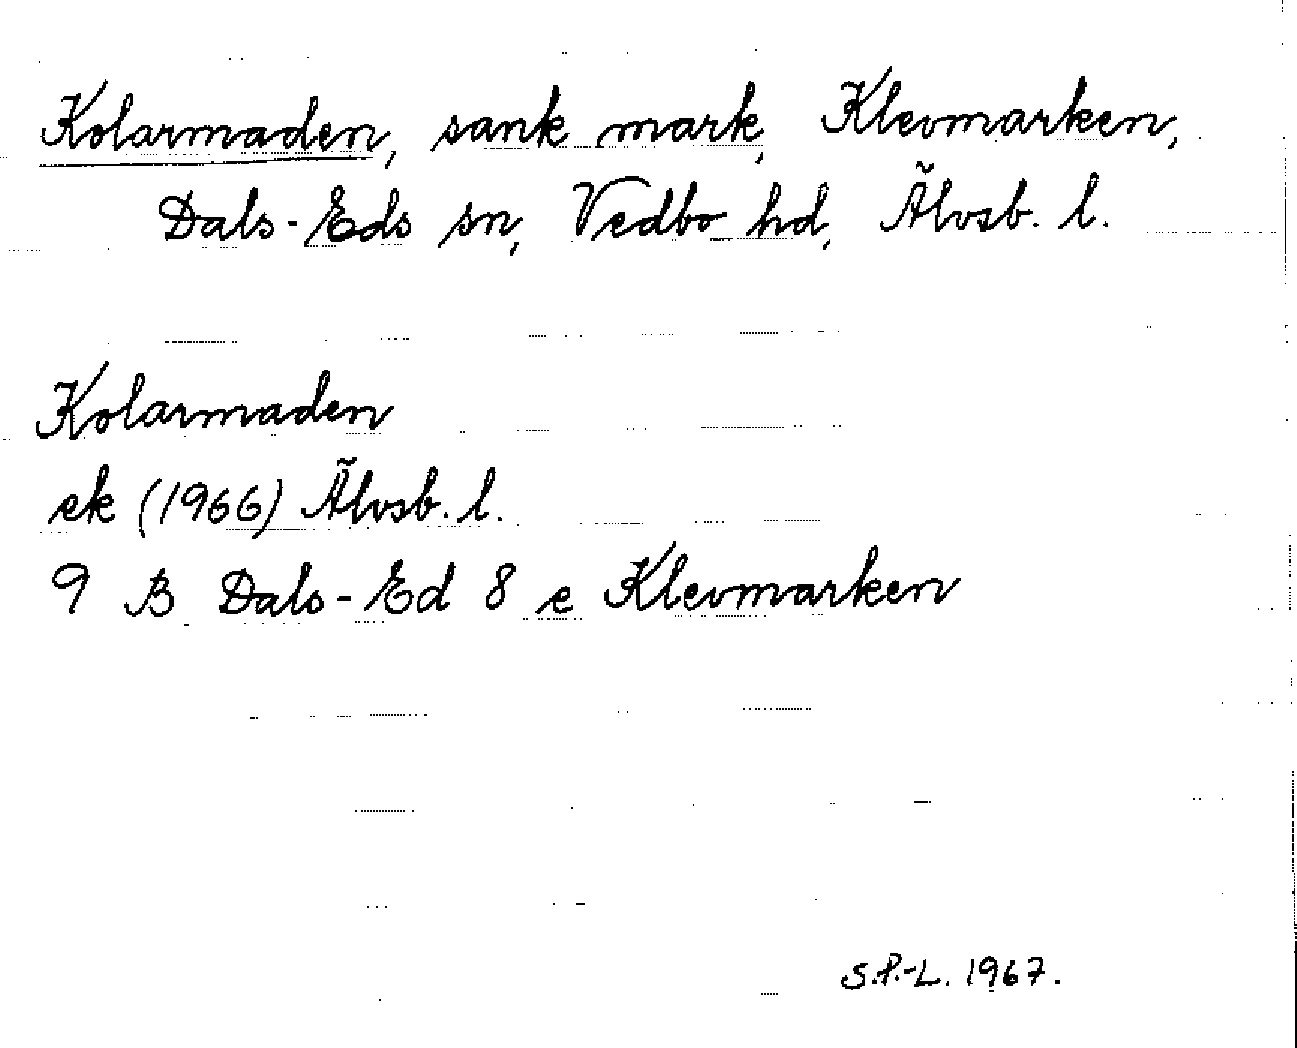 Kolarmaden, sank mark, Klevmarken,
Dals-Eds sn, Vedbo hd, Älvsb. l.
Kolarmaden
ek (1966) Älvsb. l.
9 B Dals-Ed 8 e Klevmarken
S.P.-L. 1967.